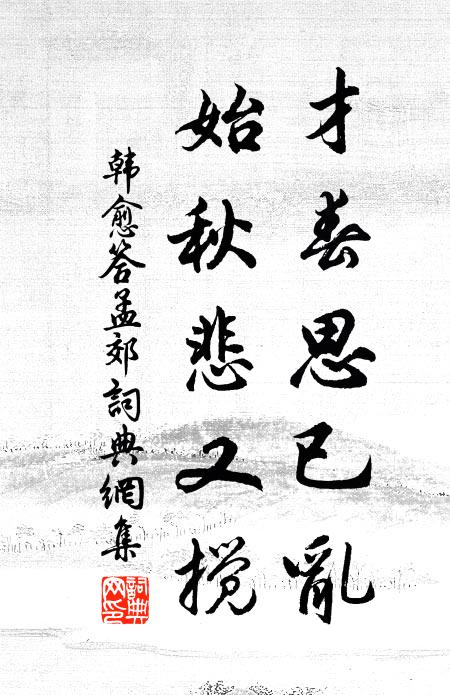 才春思已亂
始秋悲又搅
韩愈答孟郊詞典網集
詞典
网印